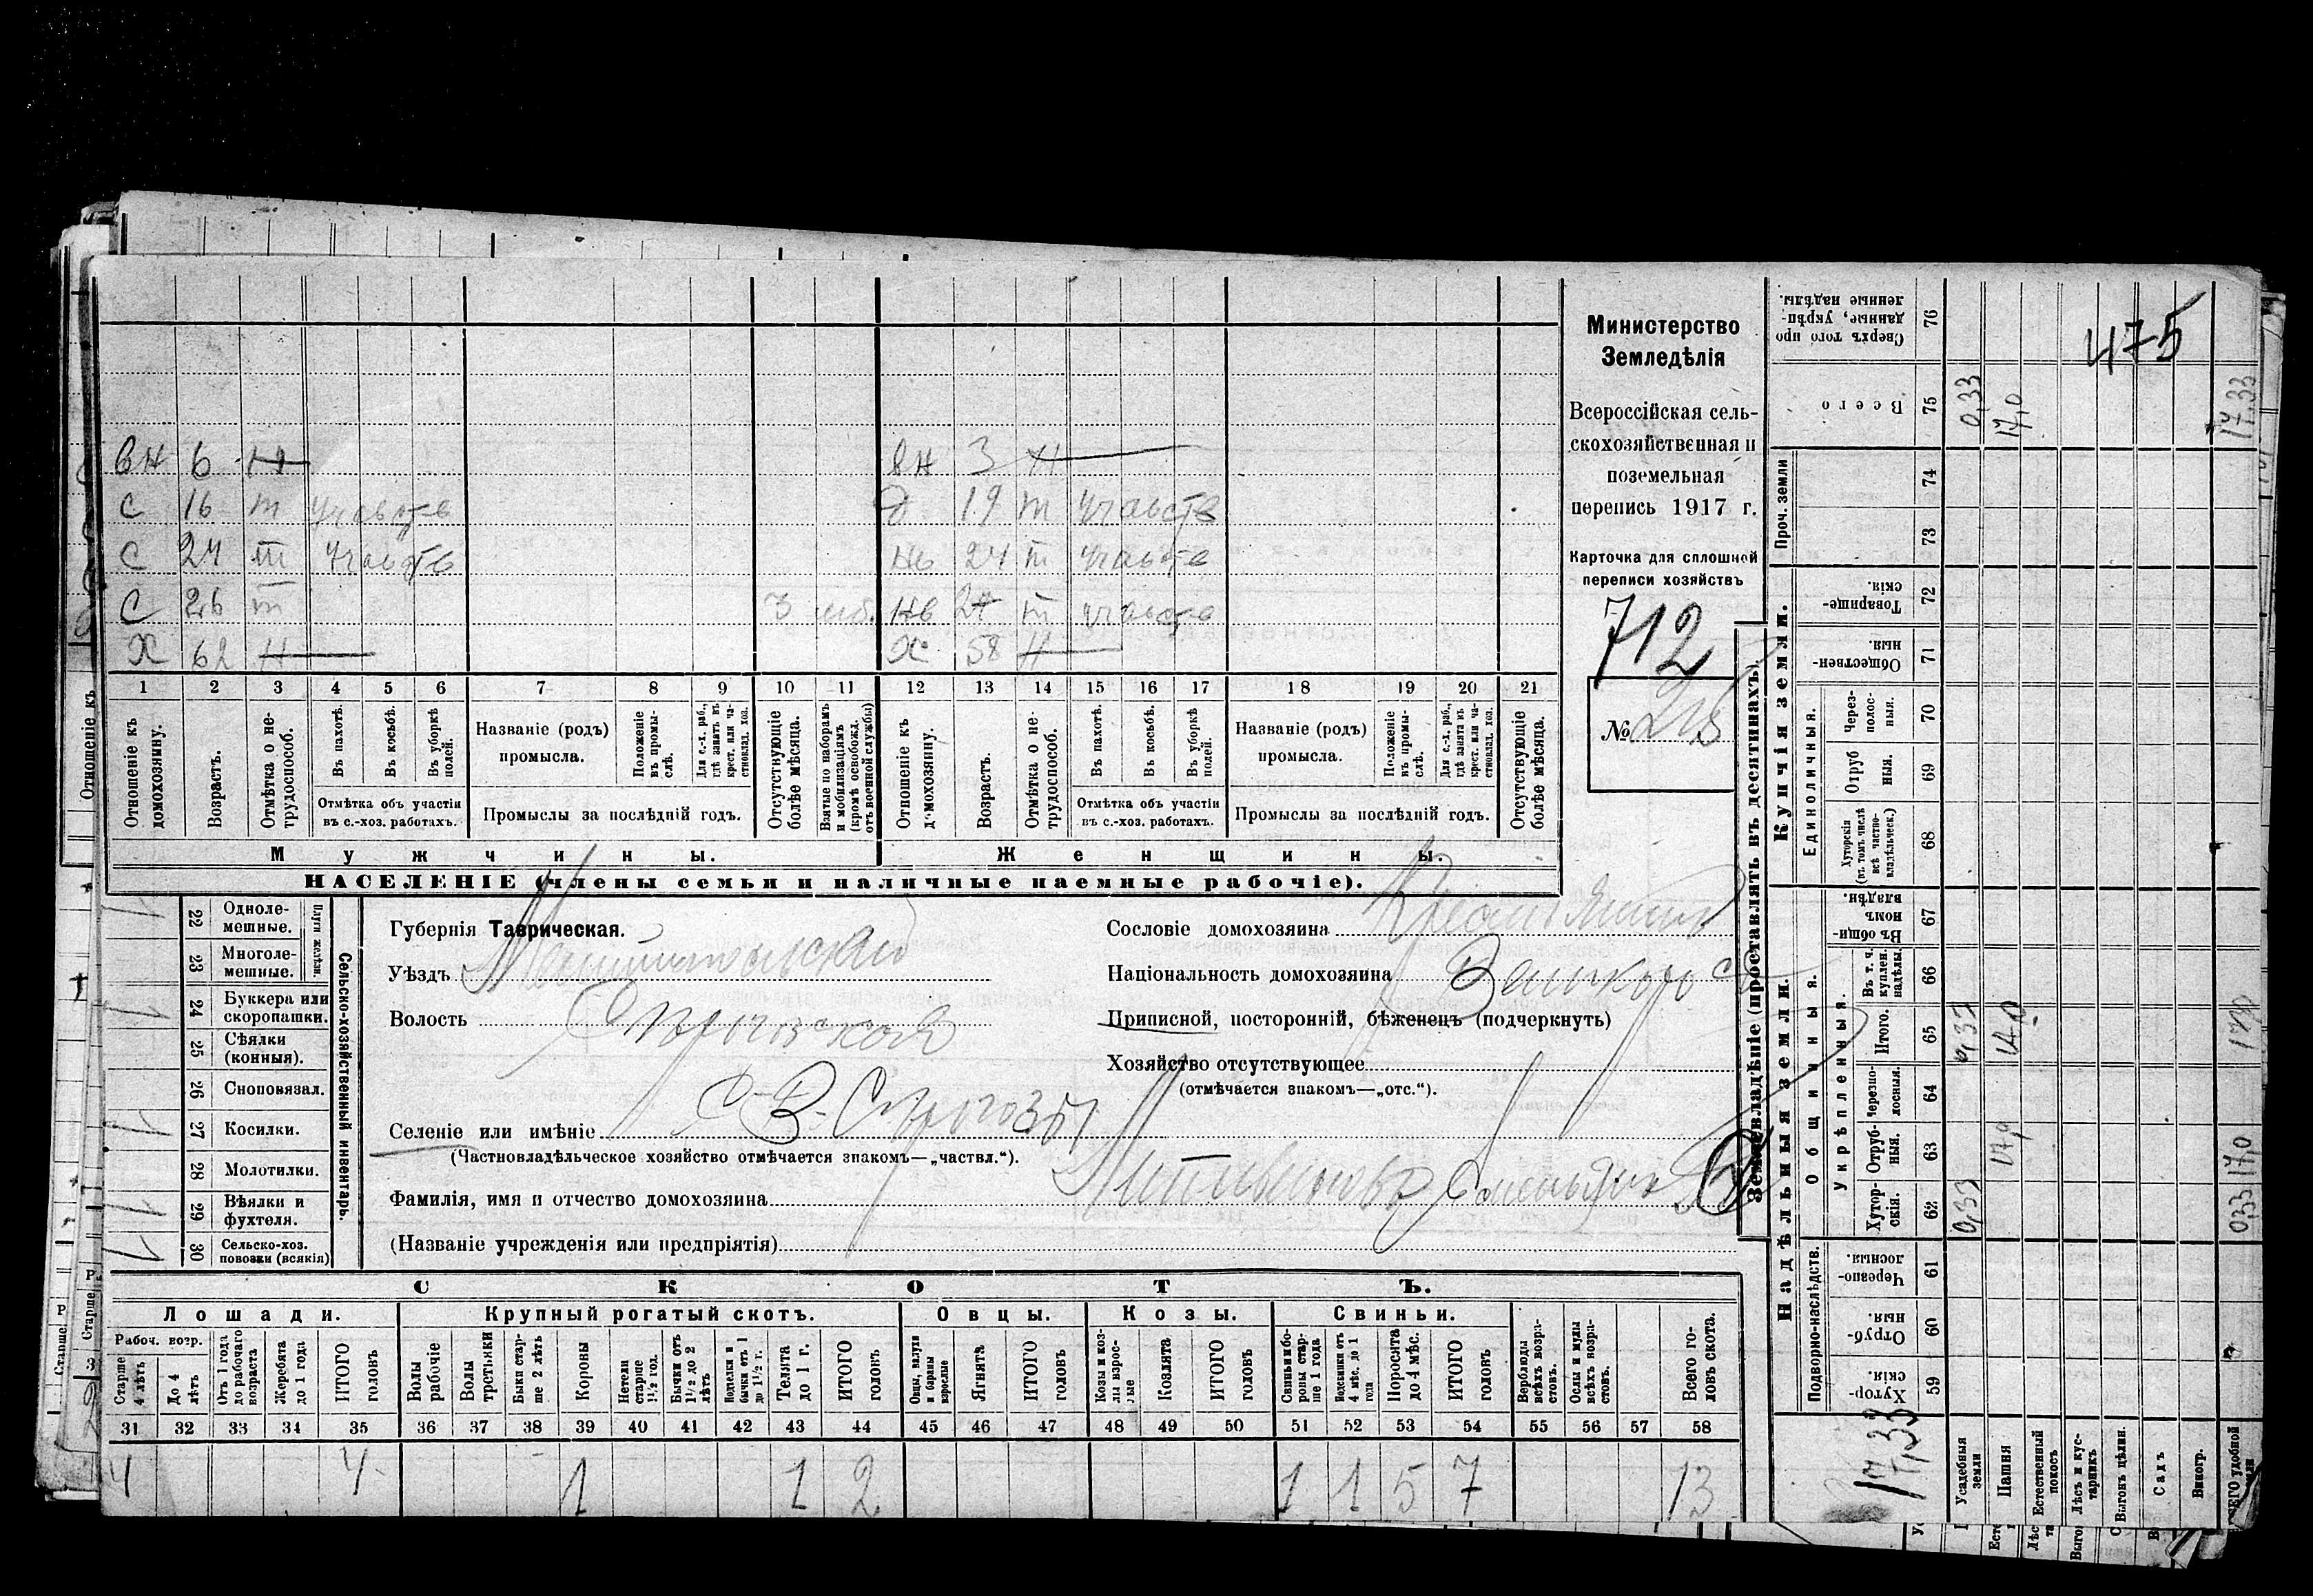 вн 6 н
вн 3 н
с 16 т участв
д 19 т участв
с 24 т участв
нв 24 т участв
с 26 т 3 моб.
нв 24 т участв
х 62 н
х 58 н
1 2 3 4 5 6 7 8 9 10 11 12 13 14 15 16 17 18 19 20 21
Отношеніе къ домохозяину.
Возрастъ.
Отмѣтка о не-трудоспособ.
Въ пахотѣ.
Въ косьбѣ.
Въ уборкѣ полей.
Отмѣтка объ участіи
въ с.-хоз. работахъ.
Названіе (родъ)
промысла.
Положеніе въ промыслѣ.
Для с.-х. раб., гдѣ занятъ въ крест. или частновлад. хоз.
Промыслы за послѣдній годъ.
Отсутствующіе болѣе мѣсяца.
Взятые по наборамъ и мобилизаціямъ (кромѣ освобожд. отъ военной службы)
Отношеніе къ домохозяину.
Возрастъ.
Отмѣтка о не-трудоспособ.
Въ пахотѣ.
Въ косьбѣ.
Въ уборкѣ полей.
Отмѣтка объ участіи
въ с.-хоз. работахъ.
Названіе (родъ)
промысла.
Положеніе въ промыслѣ.
Для с.-х. раб., гдѣ занята въ крест. или частновлад. хоз.
Промыслы за послѣдній годъ.
Отсутствующіе болѣе мѣсяца.
Мужчины.
Женщины.
НАСЕЛЕНІЕ (члены семьи и наличные наемные рабочіе).
Министерство
Земледѣлія
Всероссійская сель-
скохозяйственная и
поземельная
перепись 1917 г.
Карточка для сплошной
переписи хозяйствъ
712
№
Сельско-хозяйственный инвентарь.
Плуги желѣзн.
22 Одноле-
мешные.
23 Многоле-
мешные.
24 Буккера или
скоропашки.
25 Сѣялки
(конныя).
26 Сноповязал.
27 Косилки.
28 Молотилки.
29 Вѣялки и
фухтеля.
30 Сельско-хоз.
повозки (всякія)
Губернія Таврическая.
Уѣздъ Мелитопольскій
Волость
Селеніе или имѣніе С. В. Сѣрогозы
(Частновладѣльческое хозяйство отмѣчается знакомъ—„частвл.“).
Фамилія, имя и отчество домохозяина
(Названіе учрежденія или предпріятія)
Сословіе домохозяина Крестьянинъ
Національность домохозяина
Приписной, посторонній, бѣженецъ (подчеркнуть)
Хозяйство отсутствующее
(отмѣчается знакомъ—„отс.“).
СКОТЪ.
Лошади. Крупный рогатый скотъ. Овцы. Козы. Свиньи.
Рабоч. возр.
Старше 4 лѣтъ
До 4 лѣтъ
Отъ 1 года до рабочаго возраста
Жеребята до 1 года
ИТОГО головъ
Волы рабочіе
Волы третьяки
Быки старше 2 лѣтъ
Коровы
Нетели старше 1½ год.
Бычки отъ 1½ до 2 лѣтъ
Водтелки и бычки отъ 1 до 1½ г.
Телята до 1 г.
ИТОГО головъ
Овцы, валухи и бараны взрослые
Ягнята
ИТОГО головъ
Козы и козлы взрослые
Козлята
ИТОГО головъ
Свиньи и боровы старше 1 года
Подсвинки отъ 4 мѣс. до 1 года
Поросята до 4 мѣс.
ИТОГО головъ
Верблюды всѣхъ возрастовъ.
Ослы и мулы всѣхъ возрастовъ.
Всего головъ скота.
31 32 33 34 35 36 37 38 39 40 41 42 43 44 45 46 47 48 49 50 51 52 53 54 55 56 57 58
4 4 1 1 2 1 1 5 7 13
475
Землевладѣніе (проставлять въ десятинахъ)
Надѣльныя земли.
Купчія земли.
Проч. земли
Подворно-наслѣдств.
Общинныя.
Укрѣпленныя.
Единоличныя.
Хутор-скія. 59
Отруб-ныя. 60
Черезпо-лосныя. 61
Хутор-скія. 62
Отруб-ныя. 63
Черезпо-лосныя. 64
Итого. 65
Въ т. ч. куплен. надѣлы. 66
Въ общин-номъ владѣн. 67
Хуторскія (въ томъ числѣ всѣ частно-владѣльческ.) 68
Отруб ныя. 69
Через-полос-ныя. 70
Обществен-ныя. 71
Товарище-скія. 72
73
74
Всего 75
Сверхъ того про данные, укрѣп-ленные надѣлы. 76
Усадебныя земли 0,33 0,33 0,33
Пашня 17,0 17,0 17,0
Естественный покосъ
Лѣсъ и кус-тарникъ
Выгонъ цѣлин.
Садъ
Виногр.
0,33 17,0 17,33
17,33